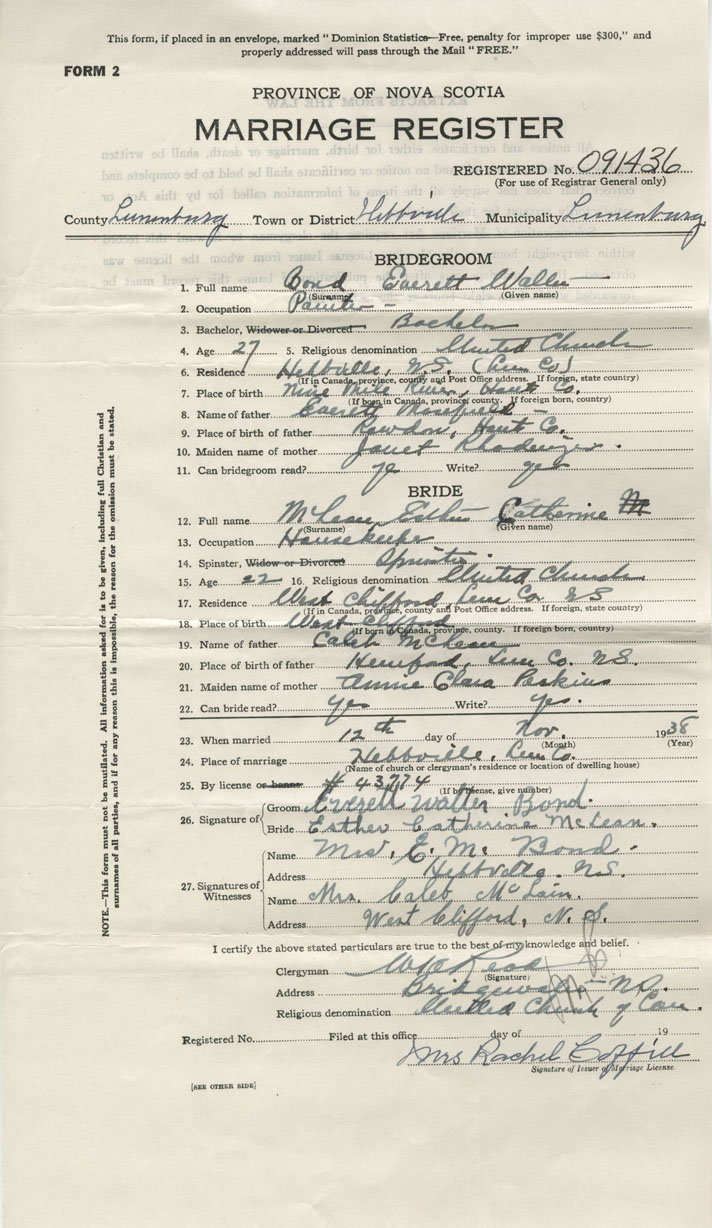 This form, if placed in an envelope, marked "Dominion Statistics—Free, penalty for improper use $300," and
properly addressed will pass through the Mail "FREE."
FORM 2
PROVINCE OF NOVA SCOTIA
MARRIAGE REGISTER
REGISTERED No. 091436
(For use of Registrar General only)
County Lunenburg Town or District Hebbville Municipality Lunenburg
BRIDEGROOM
1. Full name Bond Everett Walter
(Surname) (Given name)
2. Occupation Painter
3. Bachelor, Widower or Divorced Bachelor
4. Age 27 5. Religious denomination United Church
6. Residence Hebbville, N.S. (Lun Co)
(If in Canada, province, county and Post Office address. If foreign, state country)
7. Place of birth Nine Mile River, Hant Co.
(If born in Canada, province, county. If foreign born, country)
8. Name of father Everett
9. Place of birth of father Rawdon, Hant Co.
10. Maiden name of mother Janet
11. Can bridegroom read? ye Write? yes
BRIDE
12. Full name McLean, Esther Catherine M
(Surname) (Given name)
13. Occupation Housekeeper
14. Spinster, Widow or Divorced Spinster
15. Age 22 16. Religious denomination United Church
17. Residence West Clifford, Lun Co N S
(If in Canada, province, county and Post Office address. If foreign, state country)
18. Place of birth West Clifford
(If born in Canada, province, county. If foreign born, country)
19. Name of father Caleb McLean
20. Place of birth of father Hemford, Lun Co. N.S.
21. Maiden name of mother Annie Clara Perkins
22. Can bride read? yes Write? yes.
23. When married 12th day of Nov. 1938
(Month) (Year)
24. Place of marriage Hebbville, Lun Co.
(Name of church or clergyman's residence or location of dwelling house)
25. By license or banns # 43774
(If by license, give number)
26. Signature of Groom Everett Walter Bond.
Bride Esther Catherine McLean.
27. Signatures of Witnesses
Name Mrs. E. M. Bond.
Address Hebbville. N.S.
Name Mrs. Caleb McLain.
Address West Clifford, N. S.
I certify the above stated particulars are true to the best of my knowledge and belief.
Clergyman
(Signature)
Address Bridgewater N.S.
Religious denomination United Church of Can.
Registered No. Filed at this office day of 19
Mrs Rachel Coffill
Signature of Issuer of Marriage License.
[SEE OTHER SIDE]
NOTE.—This form must not be mutilated. All information asked for is to be given, including full Christian and
surnames of all parties, and if for any reason this is impossible, the reason for the omission must be stated.